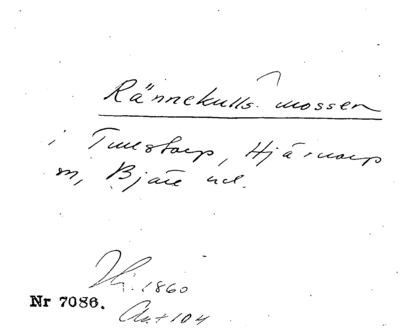 Rännekulls mossen
i Tunstorp, Hjärnarp
sn, Bjäre hd.
Hi. 1860
Nr 7086.
Ant 104